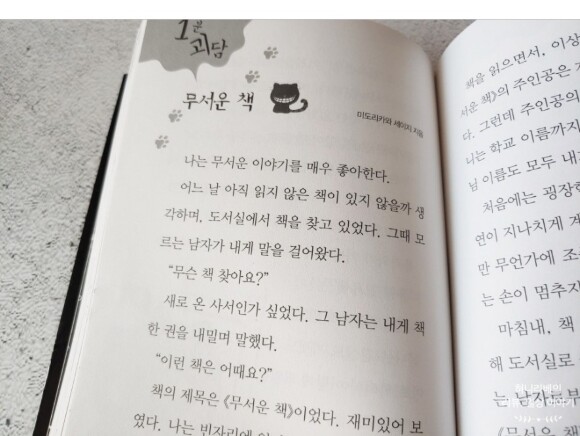 1분
괴담
무서운 책
미도리카와 세이지 지음
나는 무서운 이야기를 매우 좋아한다.
어느 날 아직 읽지 않은 책이 있지 않을까 생
각하며, 도서실에서 책을 찾고 있었다. 그때 모
르는 남자가 내게 말을 걸어왔다.
“무슨 책 찾아요?”
새로 온 사서인가 싶었다. 그 남자는 내게 책
한 권을 내밀며 말했다.
“이런 책은 어때요?”
책의 제목은 《무서운 책》이었다. 재미있어 보
였다. 나는 빈자리에
책을 읽으면서, 이상
서운 책》의 주인공은
다. 그런데 주인공의
니는 학교 이름까지
님 이름도 모두 내
처음에는 굉장
연이 지나치게 겨
만 무언가에 조
는 손이 멈추지
마침내, 책
해 도서실로
는 남자도
《무서운 책